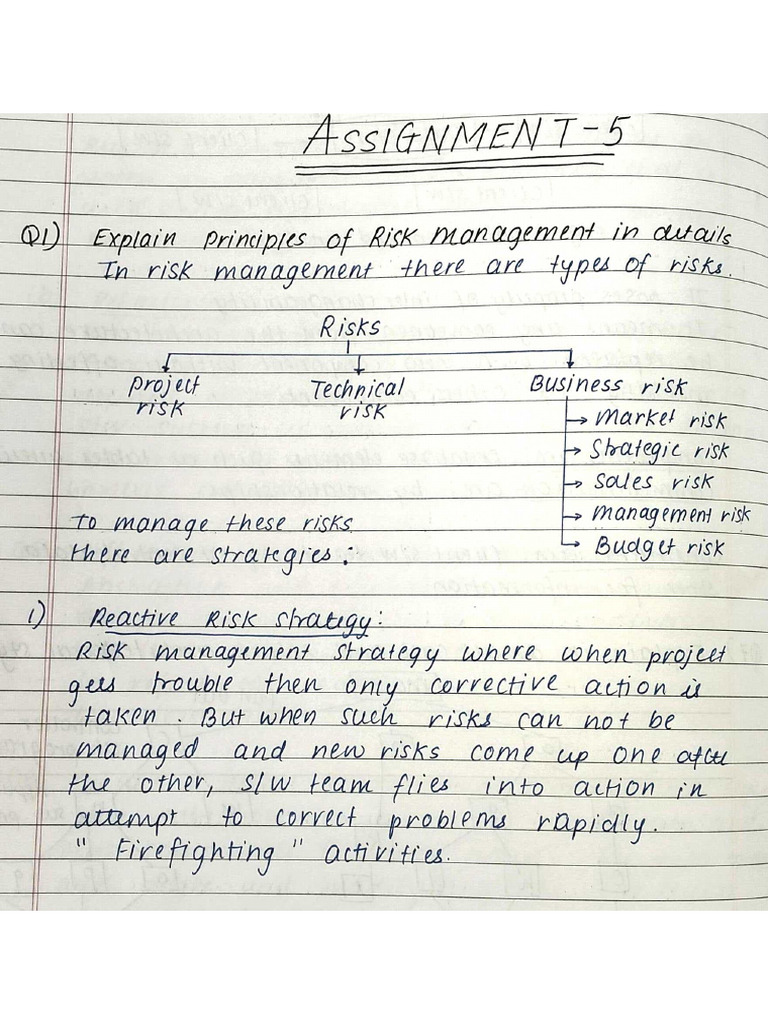 ASSIGNMENT-5
Q1) Explain Principles of Risk Management in details
In risk management there are types of risks.
Risks
Project risk
Technical risk
Business risk
→ Market risk
→ Strategic risk
→ Sales risk
→ Management risk
→ Budget risk
To manage these risks
there are strategies :
1) Reactive Risk Strategy:
Risk management strategy where when project
gets trouble then only corrective action is
taken. But when such risks can not be
managed and new risks come up one after
the other, s/w team flies into action in
attempt to correct problems rapidly.
" Firefighting " activities.